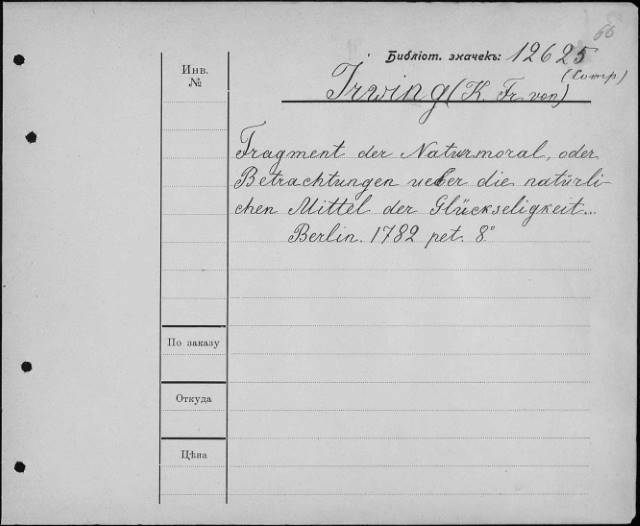 66
Библіот. значекъ: 12625
(Comp)
Инв.
№
Irwing (K. Fr. von)
Fragment der Naturmoral, oder
Betrachtungen ueber die natürli-
chen Mittel der Glückseligkeit...
Berlin. 1782 pet. 8°
По заказу
Откуда
Цѣна